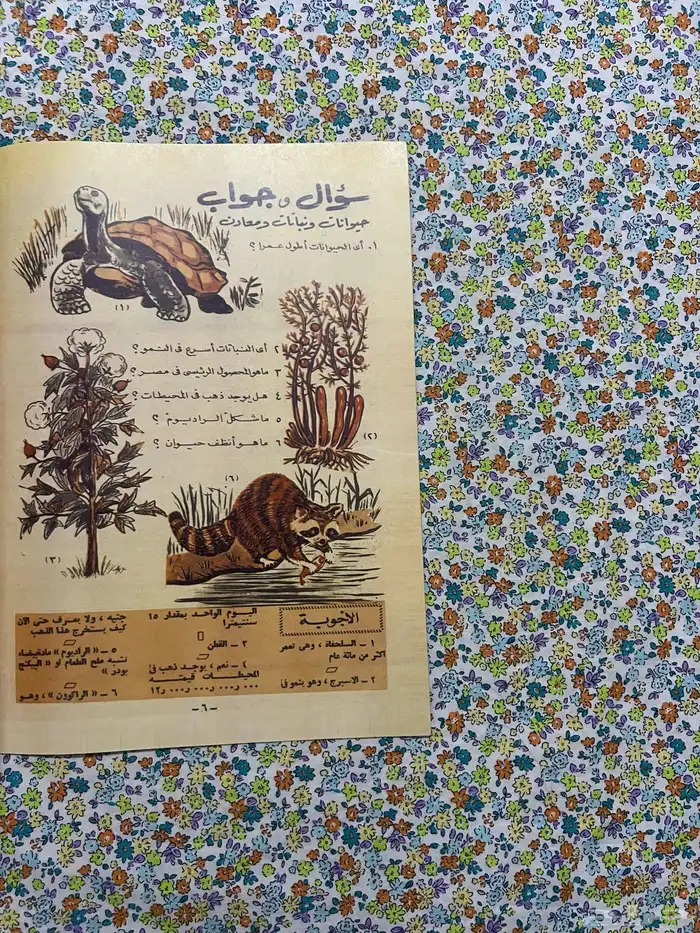 سؤال و جواب
حيوانات ونباتات ومعادن
١ - أى الحيوانات أطول عمرا ؟
(١)
٢ أى النباتات أسرع فى النمو ؟
٣ ماهو المحصول الرئيسى فى مصر ؟
٤ هل يوجد ذهب فى المحيطات ؟
٥ ما شكل الراديوم ؟
٦ ما هو أنظف حيوان ؟
(٢)
(٦)
(٣)
الأجوبة
١ - السلحفاة ، وهى تعمر
أكثر من مائة عام
٢ - الاسبرج ، وهو ينمو فى
اليوم الواحد بمقدار ١٥
سنتيمترا
٣ - القطن
٤ - نعم ، يوجد ذهب فى
المحيطات قيمته
١٢٫٠٠٠٫٠٠٠٫٠٠٠٫٠٠٠
جنيه ، ولا يعرف حتى الآن
كيف يستخرج هذا الذهب
٥ - « الراديوم »
تشبه ملح الطعام أو « البيكنج
بودر »
٦ - « الراكوون » ، وهو
- ٦ -